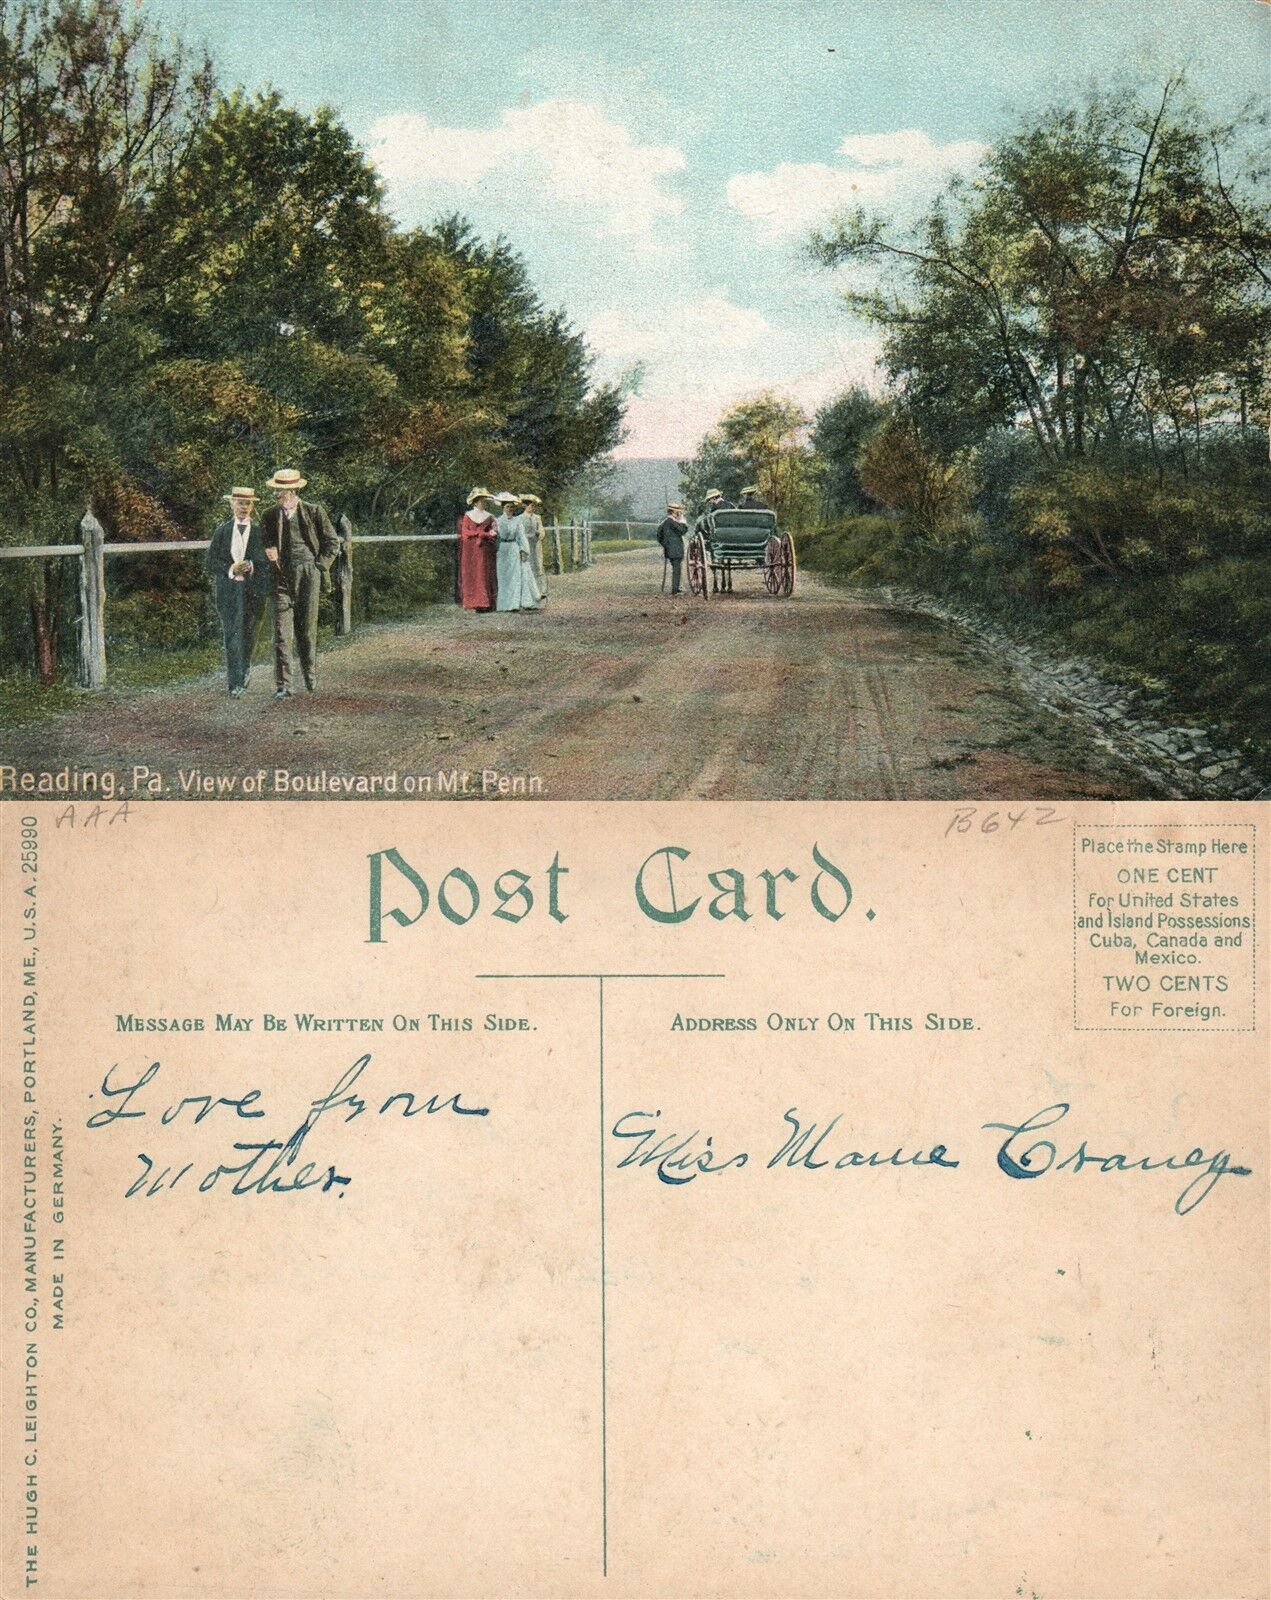 Reading, Pa. View of Boulevard on Mt. Penn.
AAA
B642
THE HUGH C. LEIGHTON CO., MANUFACTURERS, PORTLAND, ME., U.S.A. 25990
MADE IN GERMANY.
Post Card.
Place the Stamp Here
ONE CENT
For United States
and Island Possessions
Cuba, Canada and
Mexico.
TWO CENTS
For Foreign.
MESSAGE MAY BE WRITTEN ON THIS SIDE.
Love from
Mother.
ADDRESS ONLY ON THIS SIDE.
Miss Mame Craney